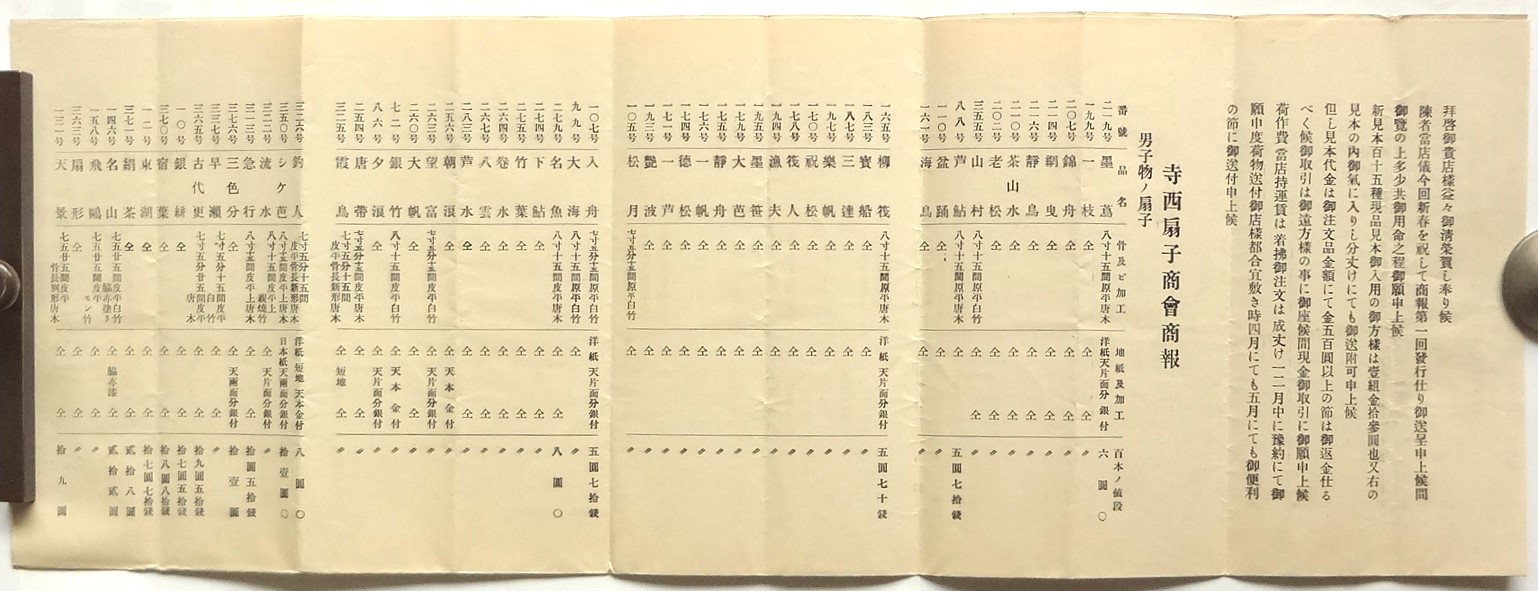 拜啓御貴店樣益々御淸榮賀し奉り候
陳者當店儀今回新春を祝して商報第一回發行仕り御送呈申上候間
御覽の上多少共御用命之程御願申上候
新見本百十五種現品見本御入用の御方樣は壹組金拾參圓也又右の
見本の內御氣に入りし分丈けにても御送附可申上候
但し見本代金は御注文品金額にて金五百圓以上の節は御返金仕る
べく候御取引は御遠方樣の事に御座候間現金御取引に御願申上候
荷作費當店持運賃は着拂御注文は成丈け一二月中に豫約にて御
願申度荷物送付御店樣都合宜敷き時四月にても五月にても御便利
の節に御送付申上候
寺西扇子商會商報
男子物ノ扇子
番號 品名 骨及ビ加工 地紙及加工 百本ノ値段
二一九号 墨蔦 八寸十五間原平唐木 洋紙天片面分銀付 六圓〇
一九九号 一枝 仝 仝 仝 〃
二〇七号 錦舟 仝 仝 仝 〃
二一四号 網曳 仝 仝 仝 〃
二一六号 靜鳥 仝 仝 仝 〃
二一〇号 茶山水 仝 仝 仝 〃
二〇二号 老松 仝 仝 仝 〃
三五五号 山村 八寸十五間皮平白竹 仝 仝 〃
八八号 芦鮎 八寸十五間原平唐木 仝 五圓七拾錢
二一〇号 盆踊 仝 仝 〃
二六一号 海鳥 仝 仝 〃
一六五号 柳筏 八寸十五間原平唐木 洋紙天片面分銀付 五圓七十錢
一八三号 寶船 仝 仝 〃
一八七号 三達 仝 仝 〃
一九二号 樂帆 仝 仝 〃
一九〇号 祝松 仝 仝 〃
一七八号 筏人 仝 仝 〃
一九四号 漁夫 仝 仝 〃
一九五号 墨笹 仝 仝 〃
一七九号 大芭 仝 仝 〃
一七五号 靜舟 仝 仝 〃
一七六号 一帆 仝 仝 〃
一七四号 德松 仝 仝 〃
一七一号 一芦 仝 仝 〃
一九三号 艷波 仝 仝 〃
一〇五号 松月 七寸五分十五間原平白竹 仝 〃
一〇七号 入舟 八寸十五間原平白竹 洋紙天片面分銀付 五圓七拾錢
九九号 大海 仝 仝 〃
二七九号 名魚 八寸十五間皮平唐木 仝 仝 八圓〇
二七四号 下鮎 仝 仝 〃
二七五号 竹葉 仝 仝 仝 〃
二六四号 卷水 仝 仝 仝 〃
二六七号 八雲 仝 仝 仝 〃
二八三号 芦水 仝 仝 仝 〃
二五六号 朝浪 仝 仝 天本金付 〃
二六三号 望富 七寸五分十五間皮平白竹 仝 仝 〃
二六〇号 大帆 仝 仝 仝 〃
七二号 銀竹 八寸十五間皮平白竹 仝 天本金付 〃
八六号 夕浪 仝 仝 天片面分銀付 〃
二五四号 唐帶 七寸五分十五間皮平唐木 仝 仝 〃
三二五号 霞鳥 七寸五分十五間皮平骨長新形唐木 仝 短地 仝 〃
三二六号 釣人 七寸五分十五間皮平骨長新形唐木 洋紙短地天本金付 八圓〇
三五〇号 シケ芭 八寸十五間皮平上唐木 日本紙天兩面分銀付 拾壹圓〇
三二二号 流水 八寸十五間皮平上親燒竹 仝 天片面分銀付 〃
三一三号 急行 八寸十五間皮平上唐木 仝 仝 拾圓五拾錢
三七六号 三色分 仝 仝 天兩面分銀付 拾壹圓
三三七号 早瀨 七寸五分十五間皮平白竹 仝 仝 〃
三六五号 古代更 七寸五分廿五間皮平唐木 仝 仝 拾九圓五拾錢
一〇号 銀絣 仝 仝 仝 拾七圓五拾錢
三七〇号 宿葉 仝 仝 仝 拾八圓八拾錢
一二一号 東湖 仝 仝 仝 拾七圓七拾錢
三七一号 絹茶 仝 仝 仝 貳拾八圓
一四六号 名山 七五廿五間皮平白竹脇赤塗り 仝 脇赤漆 仝 貳拾貳圓
一五八号 飛鷗 七五廿五間皮平モン竹 仝 仝 〃
三六三号 扇形 仝 仝 仝 〃
一三一号 天景 七五廿五間皮平骨長別形唐木 仝 仝 拾九圓